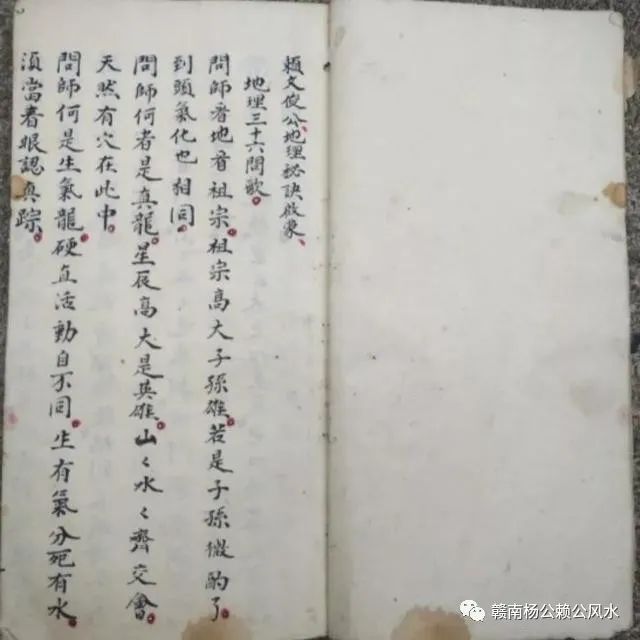 賴文俊公地理秘訣啟蒙
地理三十六問歌
問師看地看祖宗祖宗高大子孫雄若是子孫微酌了
到頭氣化也相同
問師何者是真龍星辰高大是英雄山々水々齊交會
天然有穴在此中
問師何是生氣龍硬直活動自不同生有氣分死有水
須當着眼認真踪
赣南杨公赖公风水